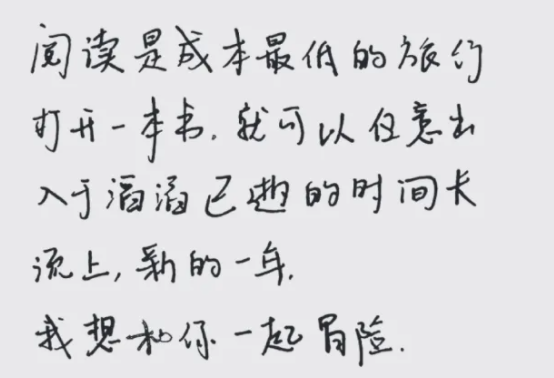 阅读是成本最低的旅行
打开一本书,就可以任意出
入于滔滔已逝的时间长
流上,新的一年,
我想和你一起冒险.